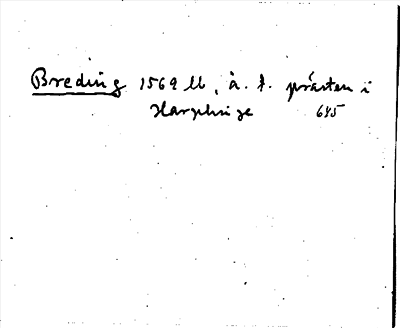 Breding 1569 ll, å. f. prästen i
Harplinge 645